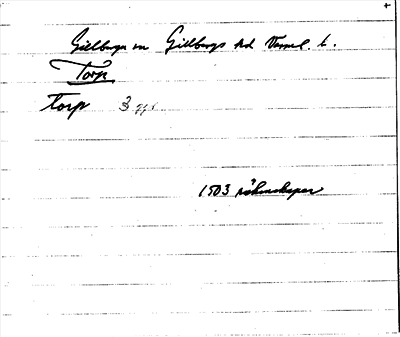 Gillberga sn Gillbergs hd Värml. l.
Torp
Torp 3 ggr
1503 räkenskaper